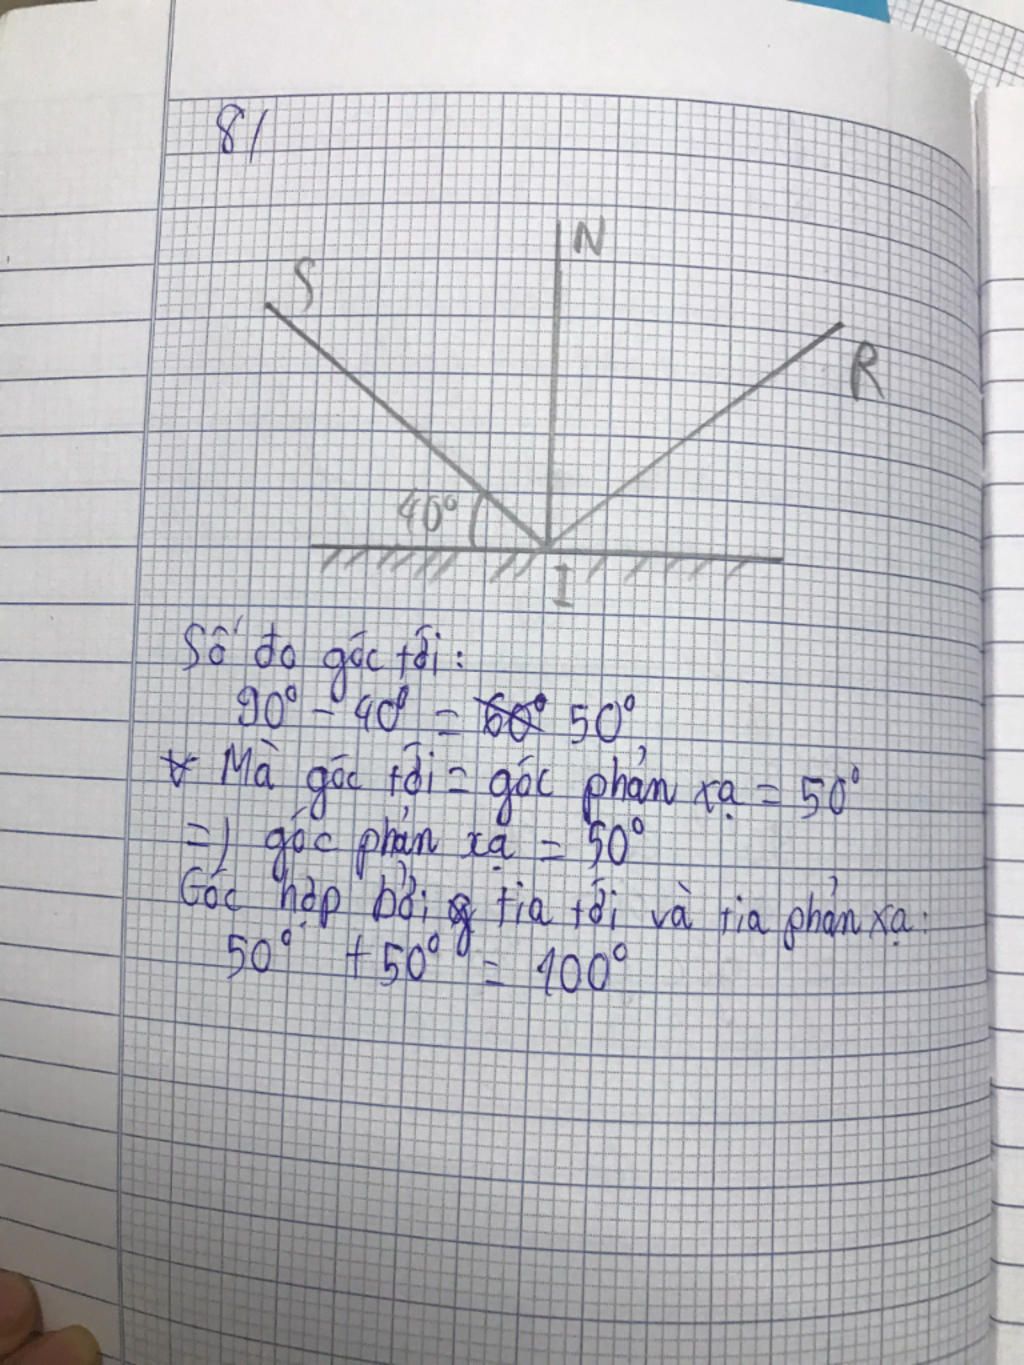 8/
N
S
R
40°
I
Số đo góc tới:
90° - 40° = 60° 50°
Mà góc tới = góc phản xạ = 50°
=) góc phản xạ = 50°
Góc hợp bởi g tia tới và tia phản xạ:
50° + 50° = 100°